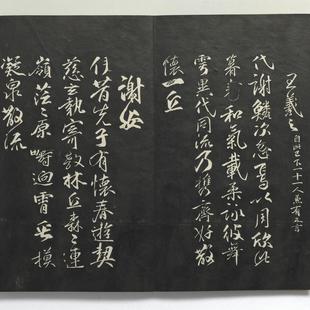 王羲之 自此已下十一人並有五言
代謝鱗次忽焉以周欣此
暮春和氣載柔詠彼舞
雩異代同流乃攜齊好散
懷一丘
謝安
伊昔先子有懷春遊契
茲言執寄敖林丘森〻連
嶺茫〻原疇迥霄垂
凝泉散流